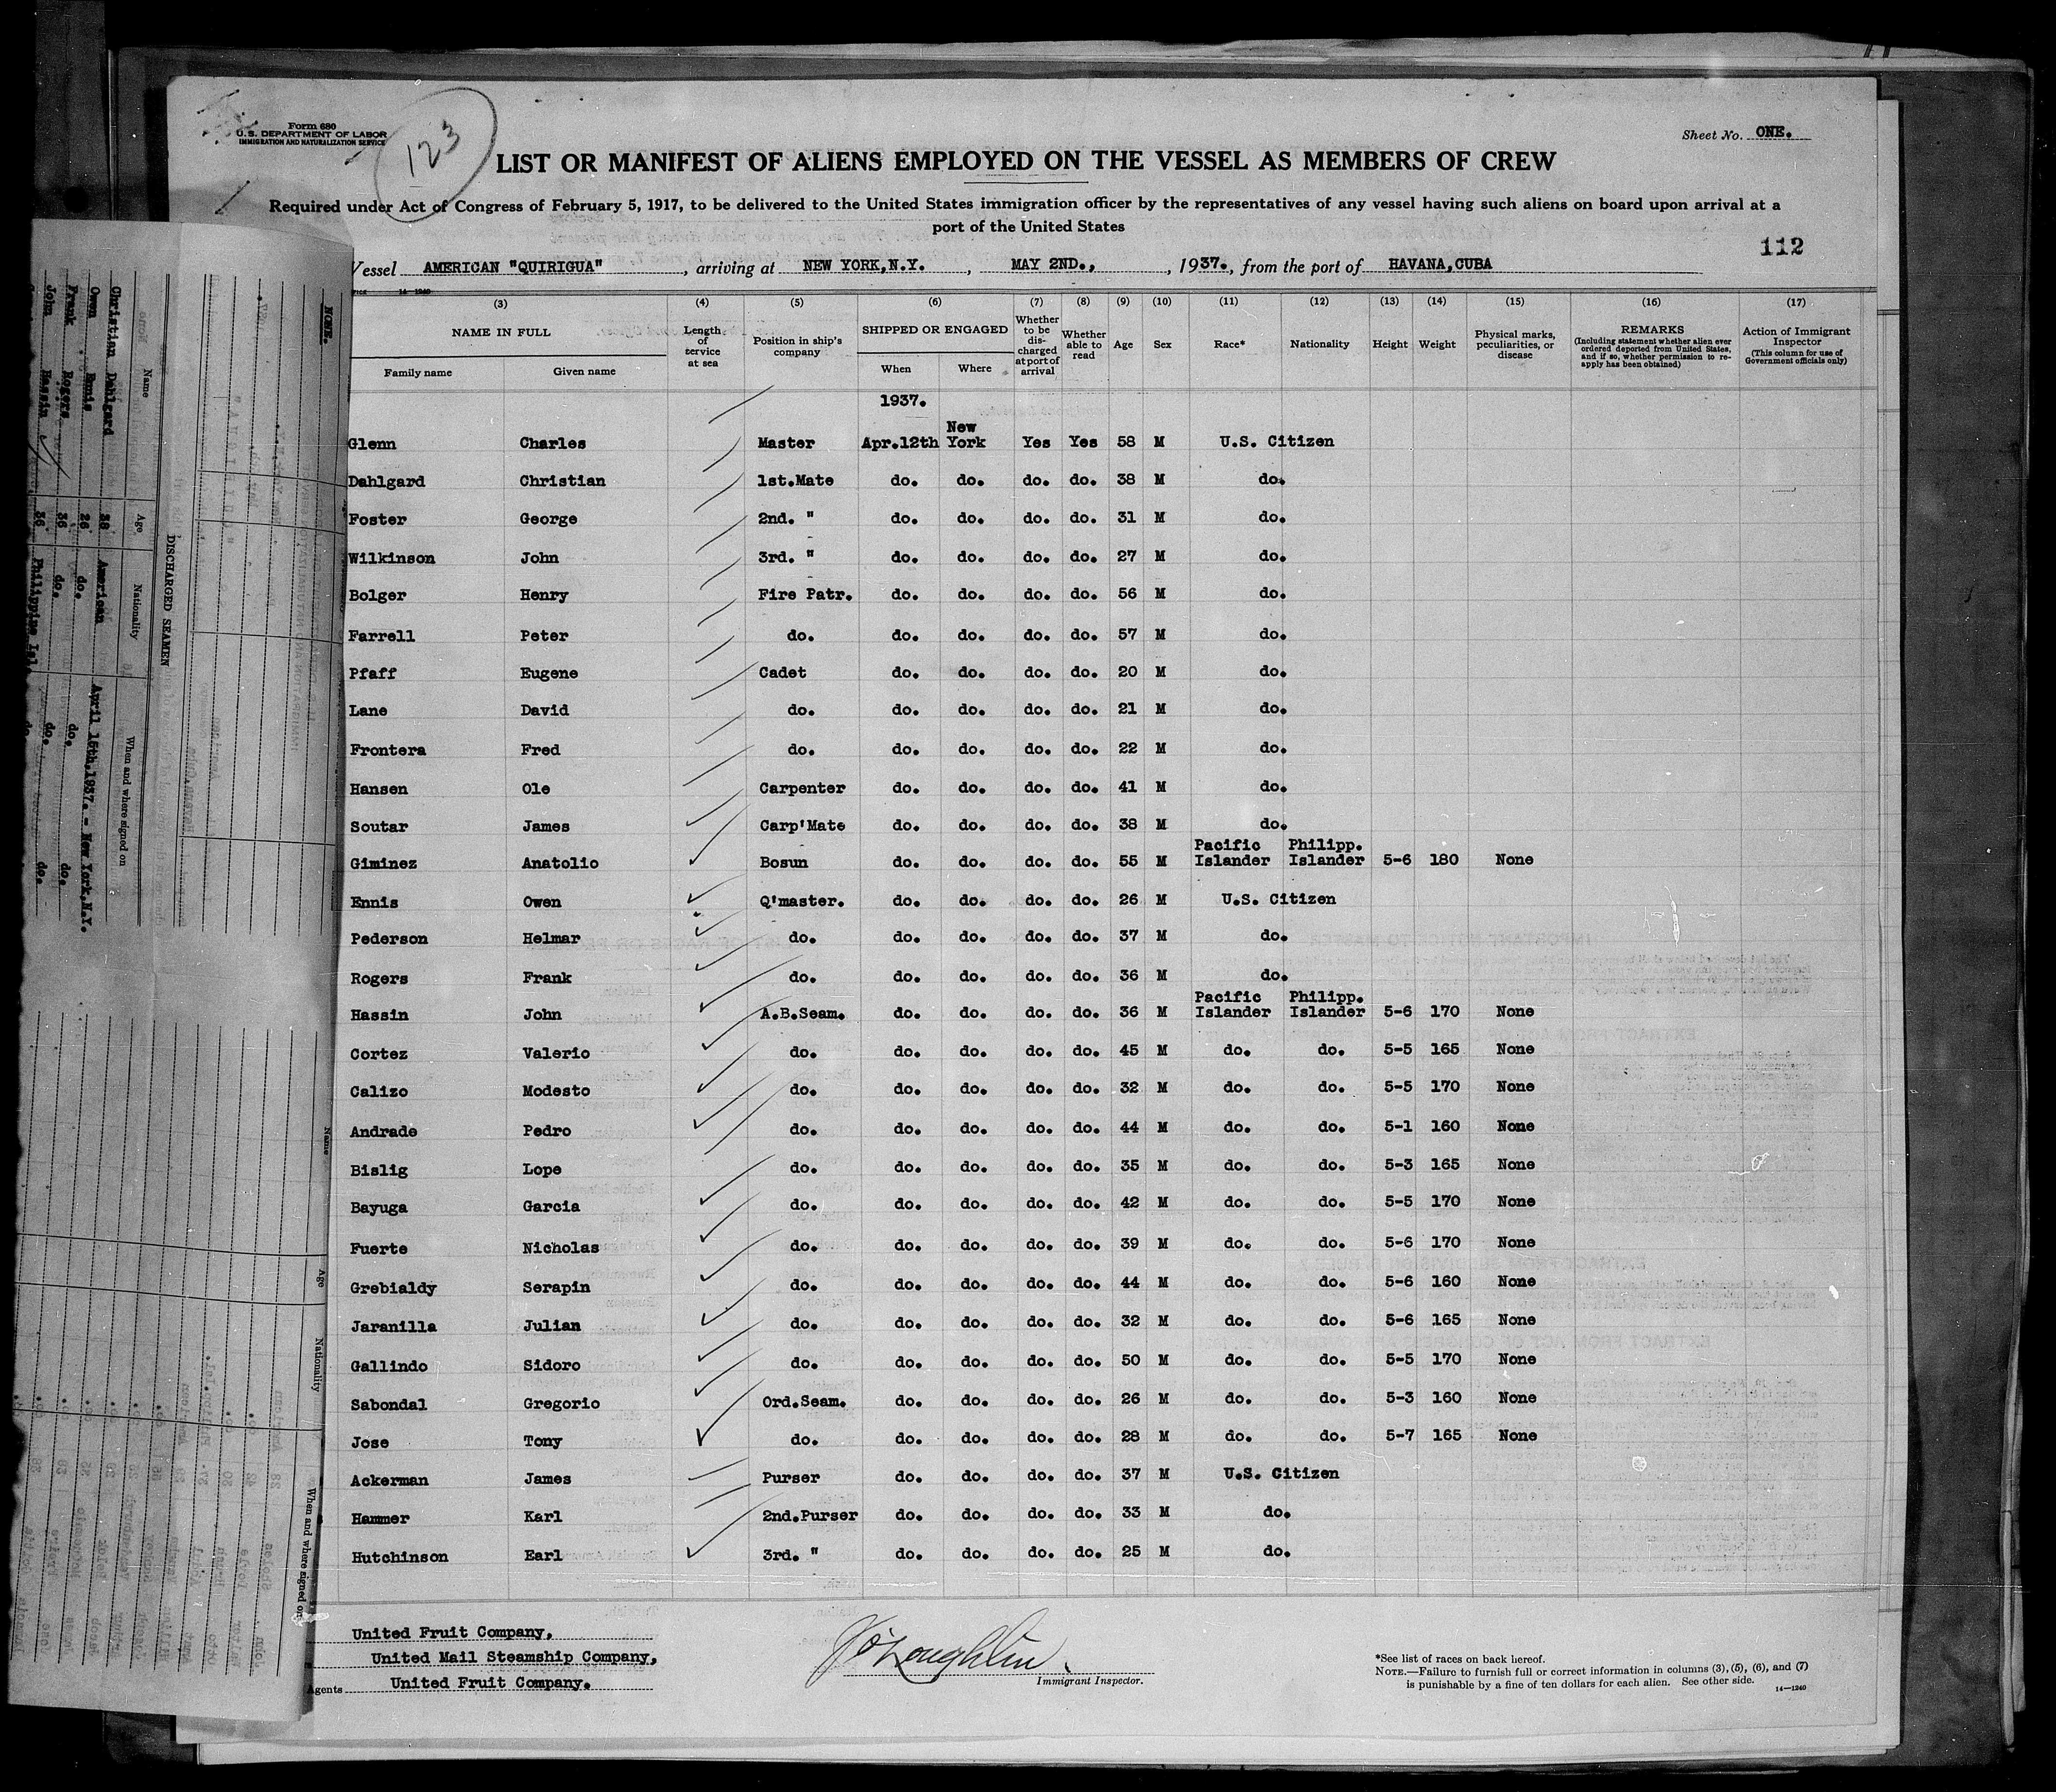 Form 680
U.S. DEPARTMENT OF LABOR
IMMIGRATION AND NATURALIZATION SERVICE
123
Sheet No. ONE.
LIST OR MANIFEST OF ALIENS EMPLOYED ON THE VESSEL AS MEMBERS OF CREW
Required under Act of Congress of February 5, 1917, to be delivered to the United States immigration officer by the representatives of any vessel having such aliens on board upon arrival at a
port of the United States
112
Vessel AMERICAN "QUIRIGUA", arriving at NEW YORK,N.Y., MAY 2ND., , 1937., from the port of HAVANA,CUBA
14—1240
(3) (4) (5) (6) (7) (8) (9) (10) (11) (12) (13) (14) (15) (16) (17)
NAME IN FULL
Family name Given name
Length of service at sea
Position in ship's company
SHIPPED OR ENGAGED
When Where
Whether to be discharged at port of arrival
Whether able to read
Age
Sex
Race*
Nationality
Height
Weight
Physical marks, peculiarities, or disease
REMARKS
(Including statement whether alien ever ordered deported from United States, and if so, whether permission to re-apply has been obtained)
Action of Immigrant Inspector
(This column for use of Government officials only)
1937.
Glenn Charles Master Apr.12th New York Yes Yes 58 M U.S. Citizen
Dahlgard Christian 1st.Mate do. do. do. do. 38 M do.
Foster George 2nd. " do. do. do. do. 31 M do.
Wilkinson John 3rd. " do. do. do. do. 27 M do.
Bolger Henry Fire Patr. do. do. do. do. 56 M do.
Farrell Peter do. do. do. do. do. 57 M do.
Pfaff Eugene Cadet do. do. do. do. 20 M do.
Lane David do. do. do. do. do. 21 M do.
Frontera Fred do. do. do. do. do. 22 M do.
Hansen Ole Carpenter do. do. do. do. 41 M do.
Soutar James Carp'Mate do. do. do. do. 38 M do.
Giminez Anatolio Bosun do. do. do. do. 55 M Pacific Islander Philipp. Islander 5-6 180 None
Ennis Owen Q'master. do. do. do. do. 26 M U.S. Citizen
Pederson Helmar do. do. do. do. do. 37 M do.
Rogers Frank do. do. do. do. do. 36 M do.
Hassin John A.B.Seam. do. do. do. do. 36 M Pacific Islander Philipp. Islander 5-6 170 None
Cortez Valerio do. do. do. do. do. 45 M do. do. 5-5 165 None
Calizo Modesto do. do. do. do. do. 32 M do. do. 5-5 170 None
Andrade Pedro do. do. do. do. do. 44 M do. do. 5-1 160 None
Bislig Lope do. do. do. do. do. 35 M do. do. 5-3 165 None
Bayuga Garcia do. do. do. do. do. 42 M do. do. 5-5 170 None
Fuerte Nicholas do. do. do. do. do. 39 M do. do. 5-6 170 None
Grebialdy Serapin do. do. do. do. do. 44 M do. do. 5-6 160 None
Jaranilla Julian do. do. do. do. do. 32 M do. do. 5-6 165 None
Gallindo Sidoro do. do. do. do. do. 50 M do. do. 5-5 170 None
Sabondal Gregorio Ord.Seam. do. do. do. do. 26 M do. do. 5-3 160 None
Jose Tony do. do. do. do. do. 28 M do. do. 5-7 165 None
Ackerman James Purser do. do. do. do. 37 M U.S. Citizen
Hammer Karl 2nd.Purser do. do. do. do. 33 M do.
Hutchinson Earl 3rd. " do. do. do. do. 25 M do.
United Fruit Company,
United Mail Steamship Company,
Agents United Fruit Company.
O'Loughlin
Immigrant Inspector.
*See list of races on back hereof.
NOTE.—Failure to furnish full or correct information in columns (3), (5), (6), and (7)
is punishable by a fine of ten dollars for each alien. See other side.
14—1240
NONE.
DISCHARGED SEAMEN
Name Age Nationality When and where signed on
Christian Dahlgard 38 American April 15th,1937.- New York,N.Y.
Owen Ennis 26 do. do. do.
Frank Rogers 36 do. do. do.
John Hassin 36 Philippine Isl. do.
Name Age Nationality When and where signed on